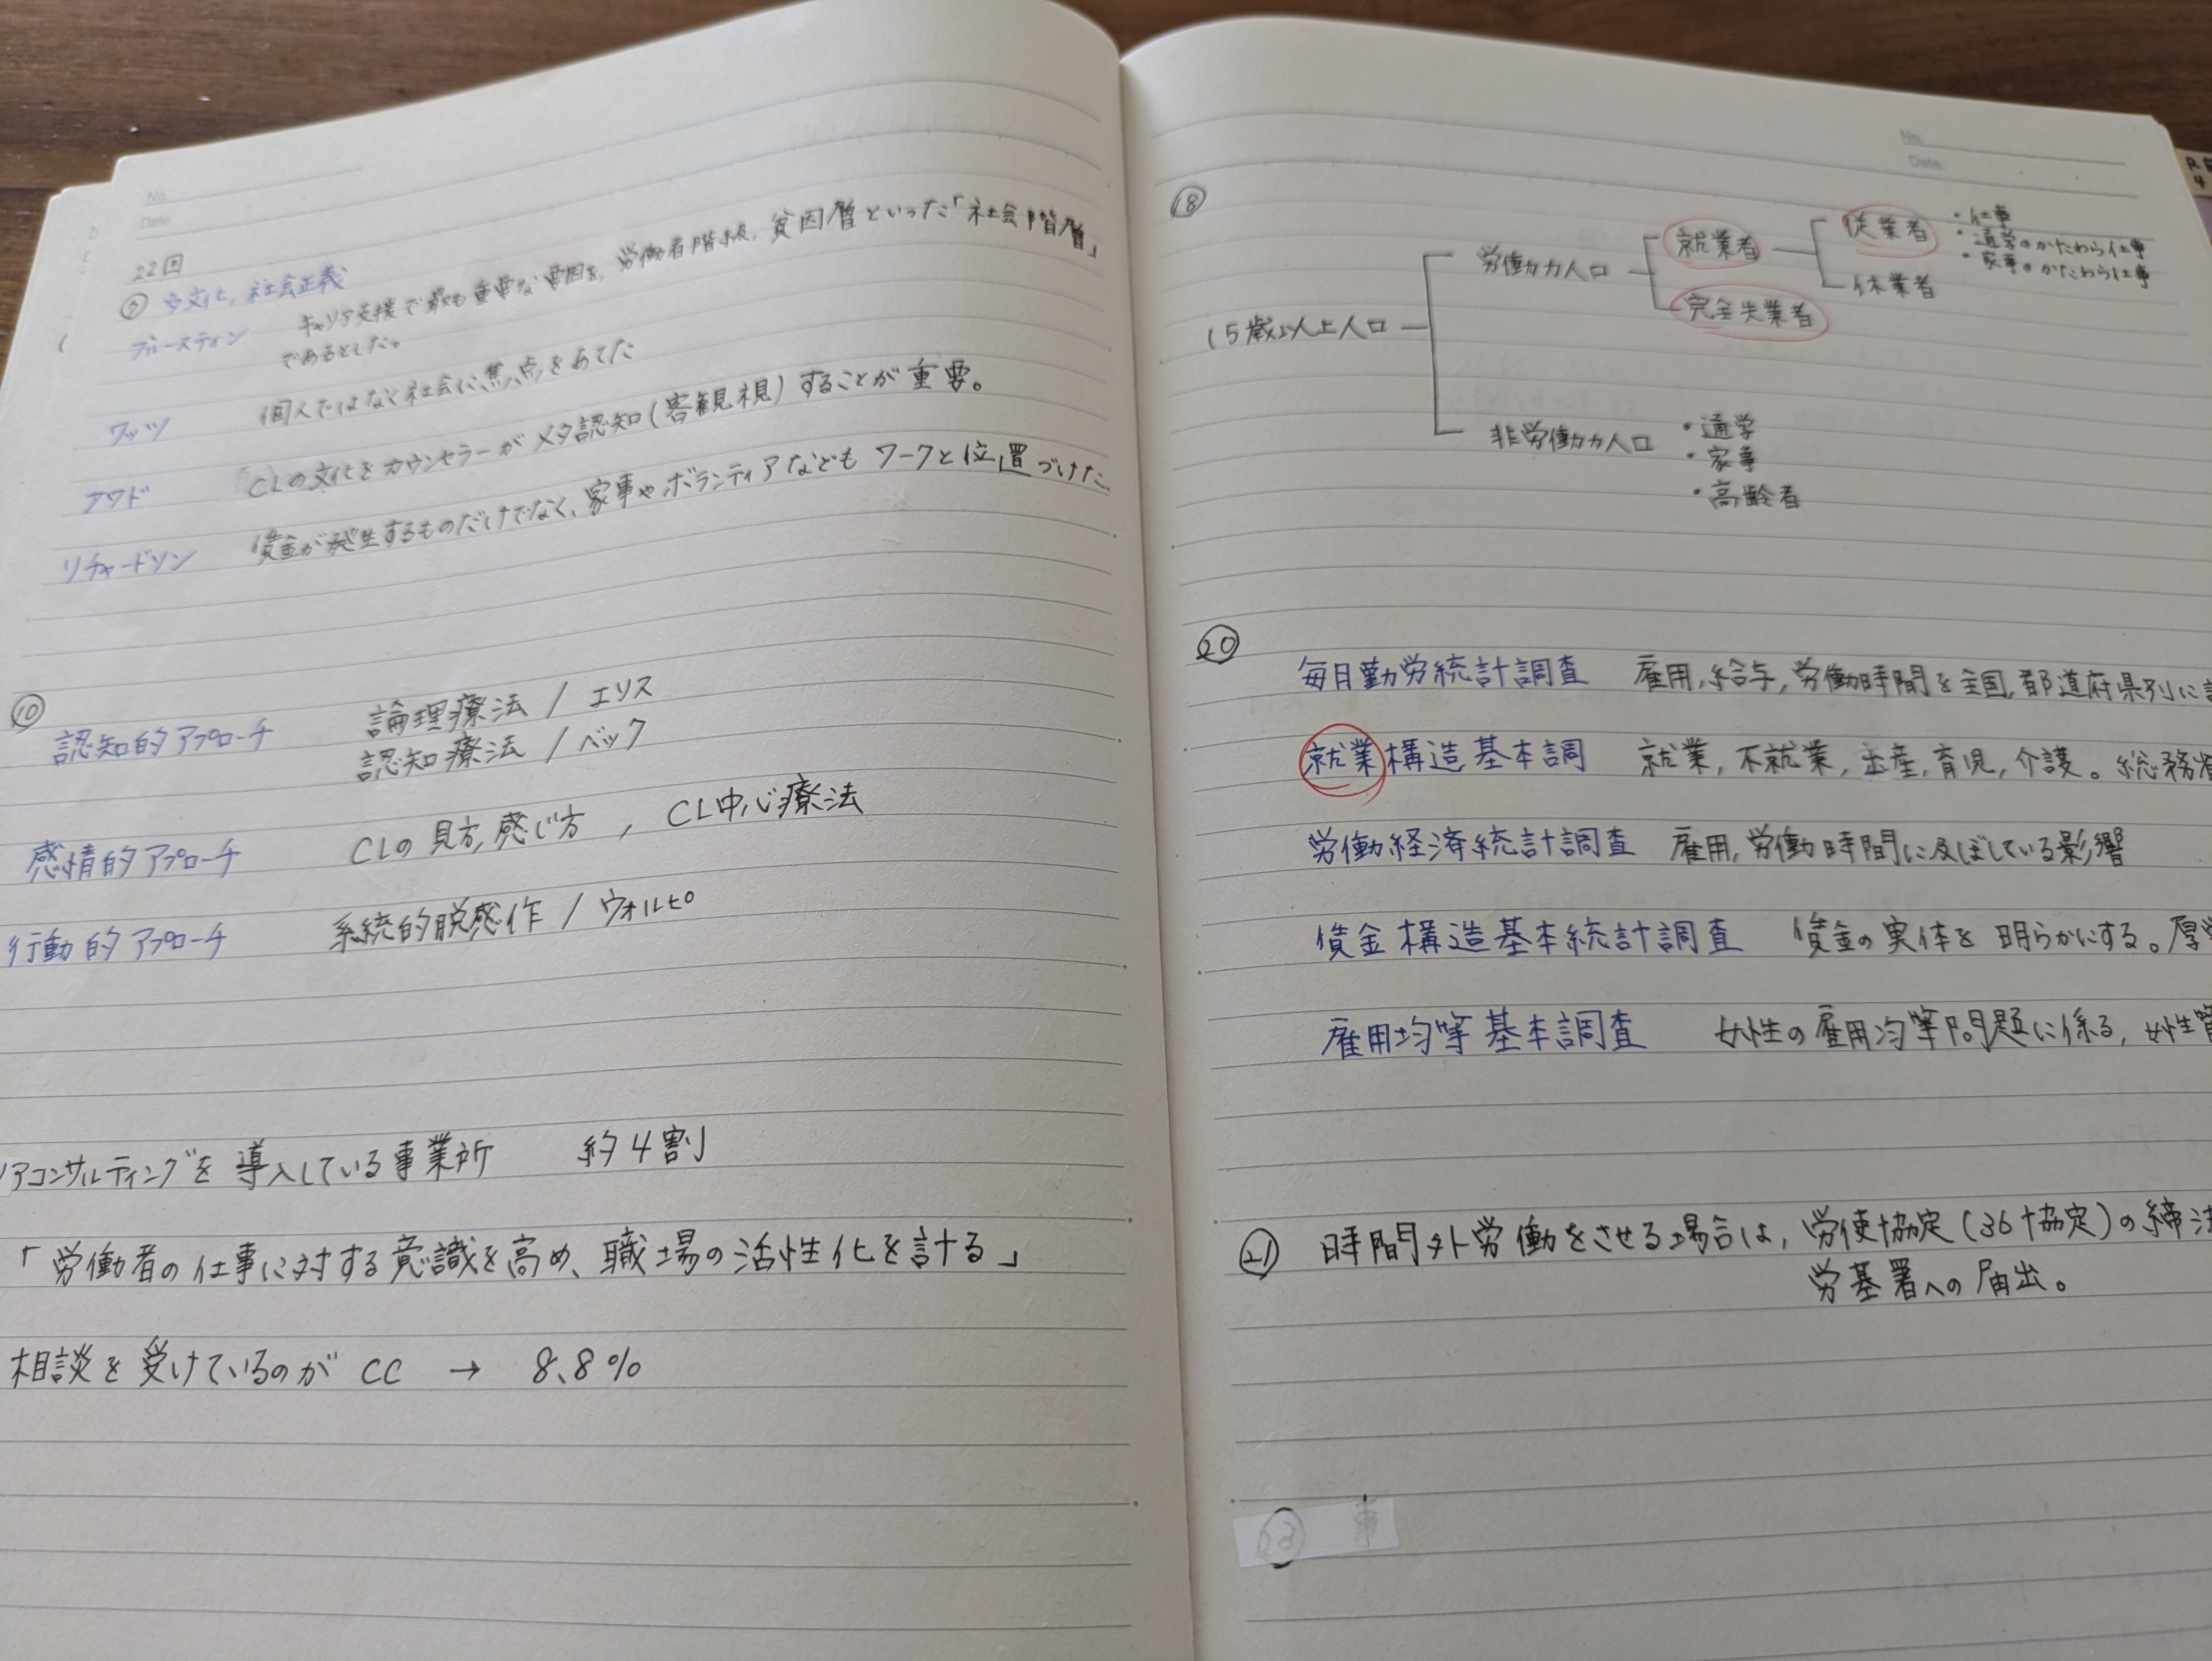 No.
Date
22回
⑦ 多文化, 社会正義
ブルースティン キャリア支援で最も重要な要因を, 労働者階級, 貧困層といった「社会階層」
であるとした。
ワッツ 個人ではなく社会に焦点をあてた
アワド CLの文化をカウンセラーがメタ認知(客観視)することが重要。
リチャードソン 賃金が発生するものだけでなく、家事やボランティアなどもワークと位置づけた
⑩
認知的アプローチ 論理療法 / エリス
認知療法 / ベック
感情的アプローチ CLの見方, 感じ方 , CL中心療法
行動的アプローチ 系統的脱感作 / ウォルピ
リアコンサルティングを導入している事業所 約4割
「労働者の仕事に対する意識を高め、職場の活性化を計る」
相談を受けているのが CC → 8.8%
No.
Date
⑱
15歳以上人口
労働力人口
就業者
従業者
・仕事
・通学のかたわら仕事
・家事のかたわら仕事
休業者
完全失業者
非労働力人口
・通学
・家事
・高齢者
⑳
毎月勤労統計調査 雇用, 給与, 労働時間を全国, 都道府県別に
就業構造基本調 就業, 不就業, 出産, 育児, 介護。総務省
労働経済統計調査 雇用, 労働時間に及ぼしている影響
賃金構造基本統計調査 賃金の実体を明らかにする。厚労
雇用均等基本調査 女性の雇用均等問題に係る, 女性管
㉑ 時間外労働をさせる場合は, 労使協定(36協定)の締
労基署への届出。
事
R
4